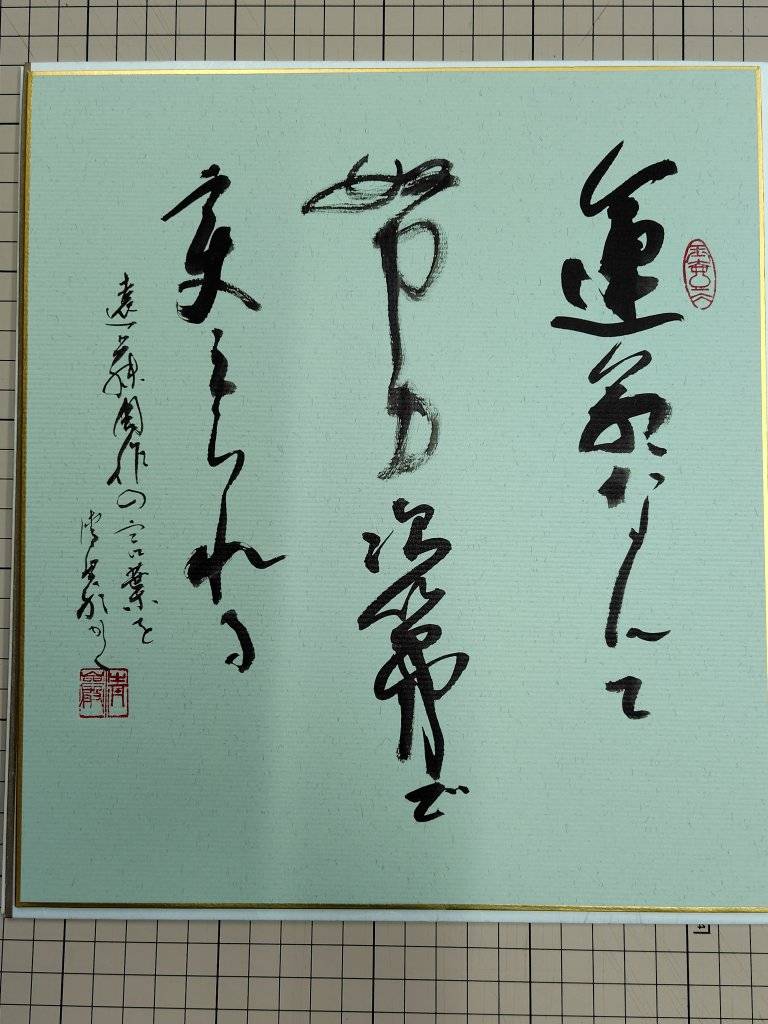 運命なんて
努力次第で
変えられる
遠藤周作の言葉を
かく